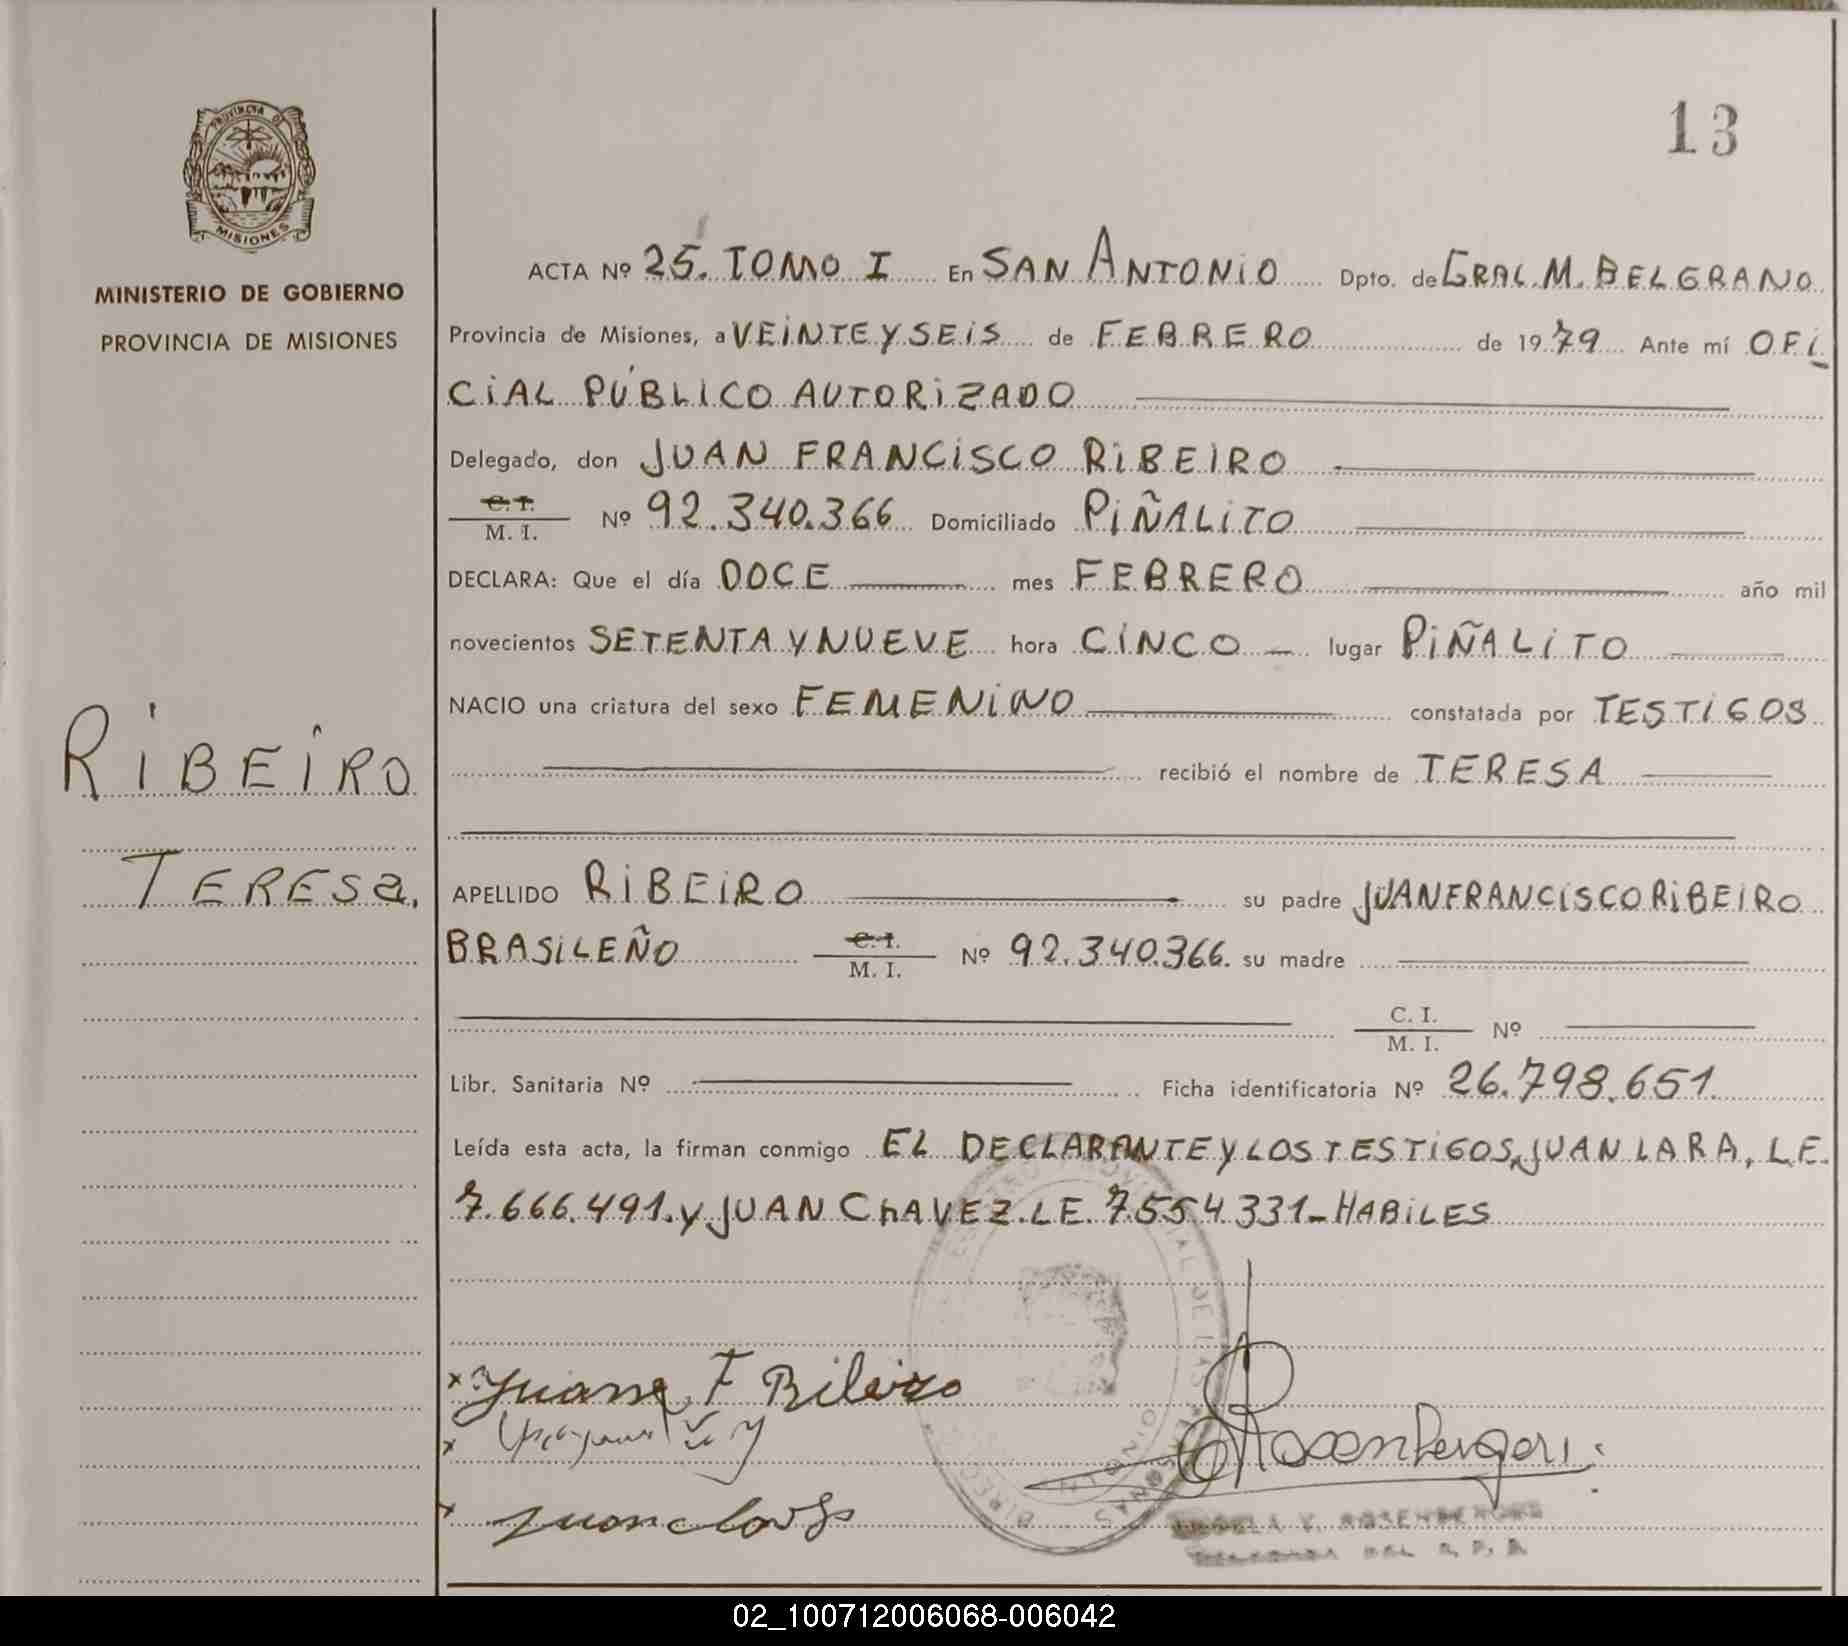 13
PROVINCIA DE
MISIONES
MINISTERIO DE GOBIERNO
PROVINCIA DE MISIONES
ACTA Nº 25. TOMO I En SAN ANTONIO Dpto. de GRAL. M. BELGRANO
Provincia de Misiones, a VEINTE Y SEIS de FEBRERO de 1979 Ante mí OFI
CIAL PÚBLICO AUTORIZADO
Delegado, don JUAN FRANCISCO RIBEIRO
C. I.
M. I. Nº 92.340.366 Domiciliado PIÑALITO
DECLARA: Que el día DOCE mes FEBRERO año mil
novecientos SETENTA Y NUEVE hora CINCO lugar PIÑALITO
NACIO una criatura del sexo FEMENINO constatada por TESTIGOS
recibió el nombre de TERESA
RIBEIRO
TERESA.
APELLIDO RIBEIRO su padre JUAN FRANCISCO RIBEIRO
BRASILEÑO C. I. M. I. Nº 92.340.366. su madre
C. I.
M. I. Nº
Libr. Sanitaria Nº Ficha identificatoria Nº 26.798.651.
Leída esta acta, la firman conmigo EL DECLARANTE Y LOS TESTIGOS, JUAN LARA, L.E.
7.666.491. y JUAN CHAVEZ. L.E. 7.554.331- HABILES
x Juan F Ribeiro
x
x
Rosenbergeri
V. ROSENBERGERI
DEL R. P. P.
02_100712006068-006042